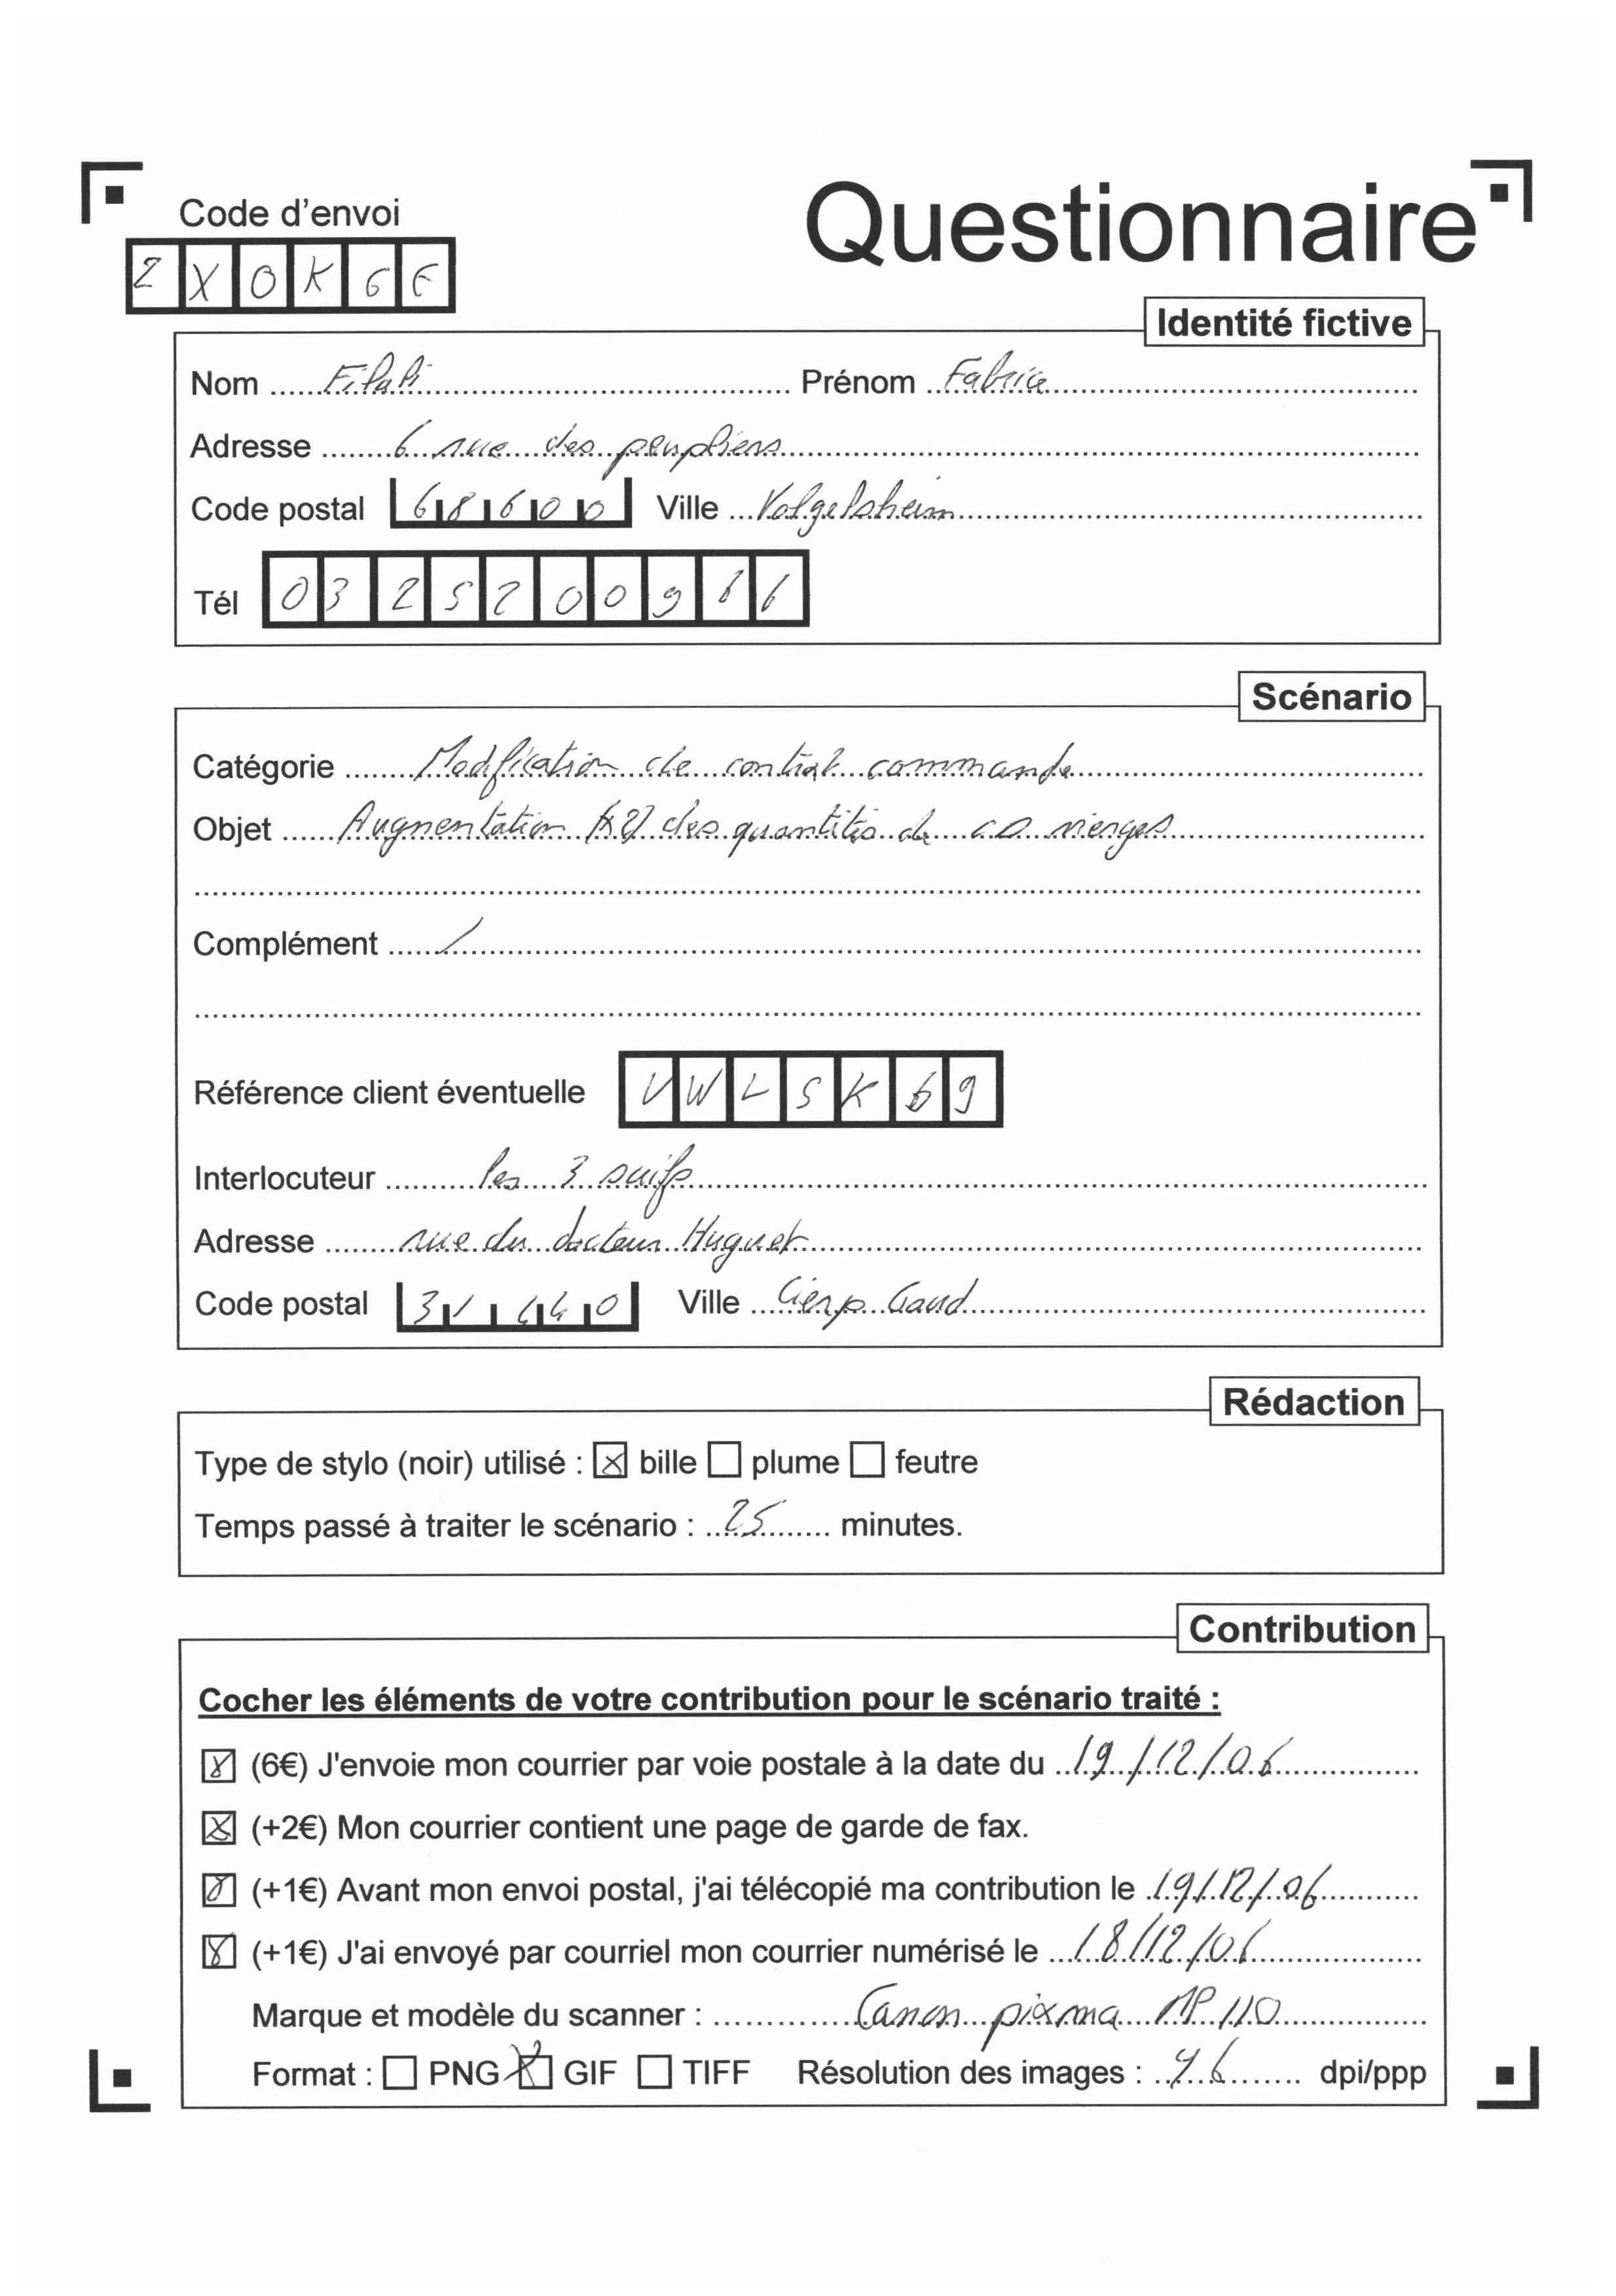 Code d'envoi
Questionnaire
ZXOKGE
Identité fictive
Nom Filali Prénom Fabrice
Adresse 6 rue des peupliers
Code postal 68600 Ville Volgelsheim
Tél 0325200966
Scénario
Catégorie Modification de contrat commande
Objet Augmentation (x2) des quantités de CD vierges
Complément /
Référence client éventuelle VWLSK69
Interlocuteur les 3 suifs
Adresse rue du docteur Huguet
Code postal 31440 Ville Cierp Gaud
Rédaction
Type de stylo (noir) utilisé : bille plume feutre
Temps passé à traiter le scénario : 25 minutes.
Contribution
Cocher les éléments de votre contribution pour le scénario traité :
(6€) J'envoie mon courrier par voie postale à la date du 19/12/06
(+2€) Mon courrier contient une page de garde de fax.
(+1€) Avant mon envoi postal, j'ai télécopié ma contribution le 19/12/06
(+1€) J'ai envoyé par courriel mon courrier numérisé le 18/12/06
Marque et modèle du scanner : Canon pixma MP 110
Format : PNG GIF TIFF Résolution des images : 96 dpi/ppp